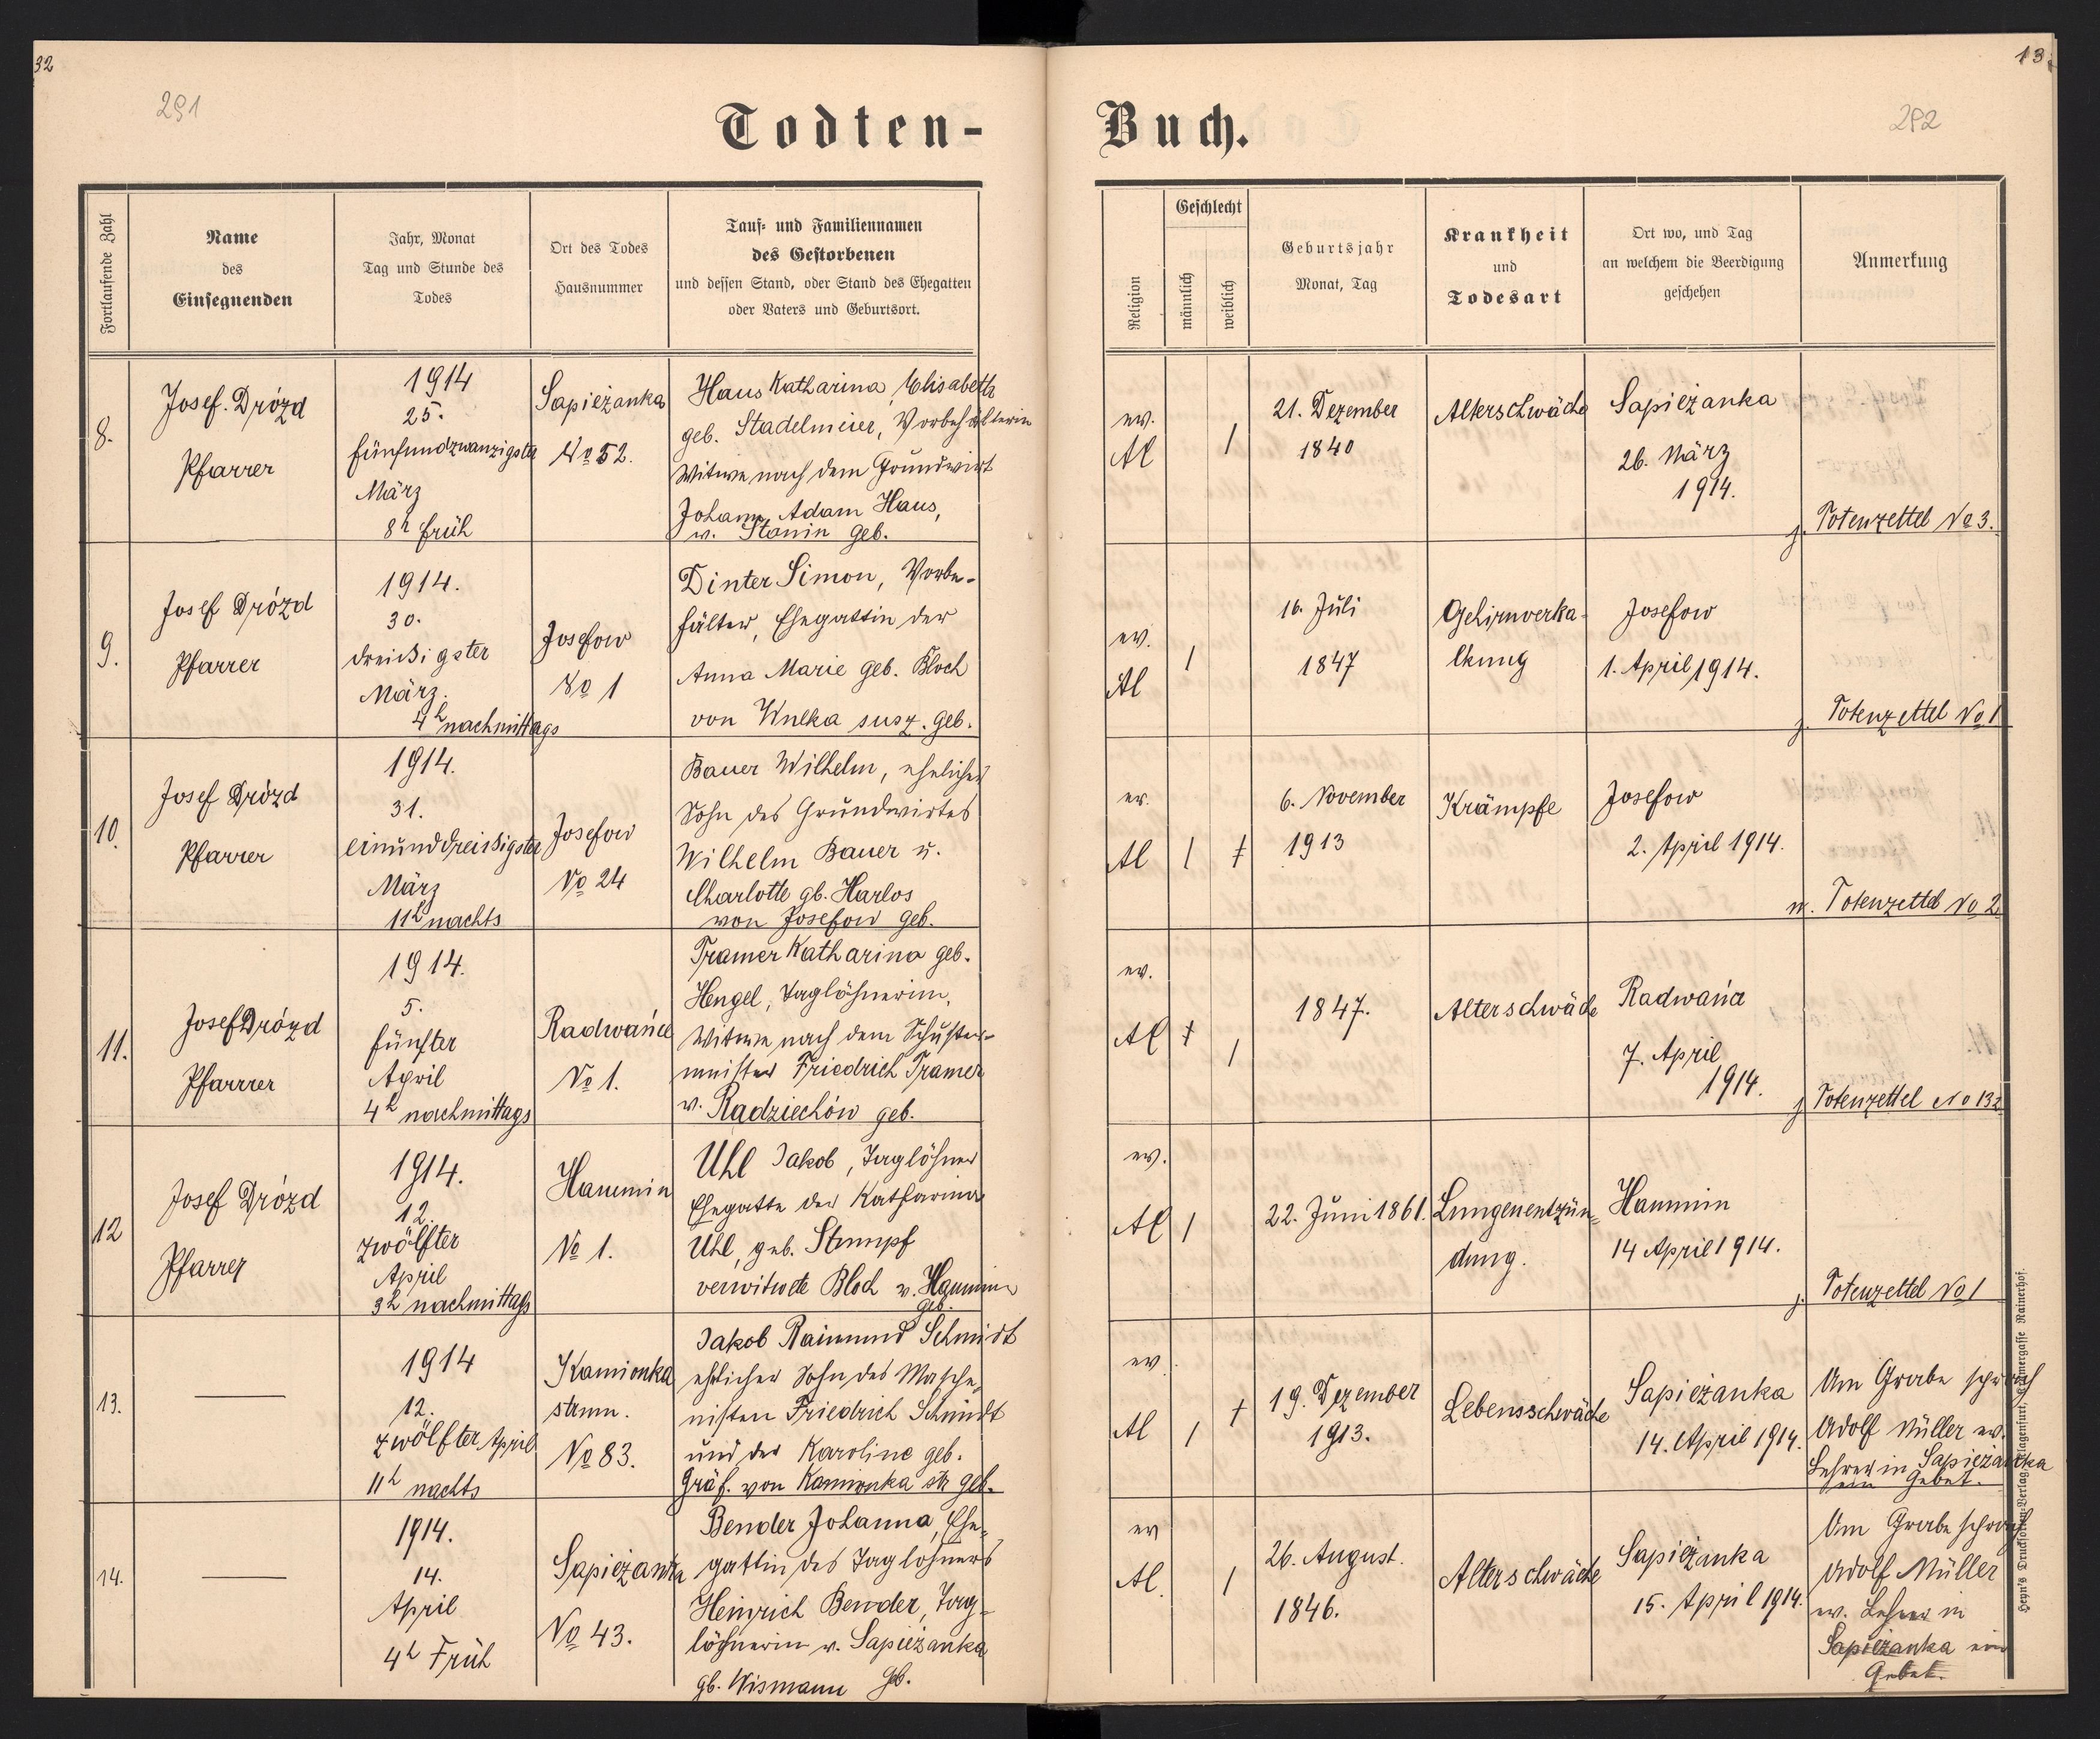 32
13
291
292
Todten-
Buch.
Fortlaufende Zahl
Name
des
Einsegnenden
Jahr, Monat
Tag und Stunde des
Todes
Ort des Todes
Hausnummer
Tauf- und Familiennamen
des Gestorbenen
und dessen Stand, oder Stand des Ehegatten
oder Vaters und Geburtsort.
Religion
Geschlecht
männlich
weiblich
Geburtsjahr
Monat, Tag
Krankheit
und
Todesart
Ort wo, und Tag
an welchem die Beerdigung
geschehen
Anmerkung
8.
Josef. Drózd
Pfarrer
1914
25.
fünfundzwanzigster
März
8h früh
Sapieżanka
No 52.
Haus Katharina Elisabeth
geb. Stadelmeier, Vorbehälterin
Witwe nach dem Grundwirt
Johann Adam Haus,
v. Stanin geb.
ev.
AC
1
21. Dezember
1840
Alterschwäche
Sapieżanka
26. März
1914.
j. Totenzettel No 3.
9.
Josef Drózd
Pfarrer
1914.
30.
dreißigster
März.
4h nachmittags
Josefow
No 1
Dinter Simon, Vorbe-
hälter, Ehegattin der
Anna Marie geb. Bloch
von Wulka susz. geb.
ev.
AC
1
16. Juli
1847
Gehirnverka-
lkung
Josefow
1. April 1914.
j. Totenzettel No 1
10.
Josef Drózd
Pfarrer
1914.
31.
einunddreissigster
März
11h nachts
Josefow
No 24
Bauer Wilhelm, ehelicher
Sohn des Grundwirtes
Wilhelm Bauer u.
Charlotte gb. Harlos
von Josefow geb.
ev.
AC
1
6. November
1913
Krämpfe
Josefow
2. April 1914.
Totenzettel No 2
11.
Josef Drózd
Pfarrrer
1914.
5.
fünfter
April
4h nachmittags
Radwańce
No 1.
Tramer Katharina geb.
Hengel, Taglöhnerin,
Witwe nach dem Schuster-
meister Friedrich Tramer
v. Radziechów geb.
ev.
AC
1
1847.
Alterschwäche
Radwańce
7. April
1914.
j. Totenzettel No 132
12
Josef Drózd
Pfarrer
1914.
12.
zwölfter
April
3h nachmittags
Hanunin
No 1.
Uhl Jakob, Taglöhner
Ehegatte der Katharina
Uhl, geb. Stumpf
verwitwete Bloch v. Hanunin
geb.
ev.
AC
1
22. Juni 1861.
Lungenentzün-
dung.
Hanunin
14 April 1914.
j. Totenzettel No 1
13.
1914
12.
zwölfter April
11h nachts
Kamionka
strum.
No 83.
Jakob Raimund Schmidt
ehelicher Sohn des Maschi-
nisten Friedrich Schmidt
und der Karoline geb.
Gräf. von Kamionka str geb.
ev.
AC
1
19. Dezember
1913.
Lebensschwäche
Sapieżanka
14. April 1914.
Am Grabe sprach
Adolf Müller ev.
Lehrer in Sapieżanka
ein Gebet.
14.
1914.
14.
April
4h Früh
Sapieżanka
No 43.
Bender Johanna, Ehe-
gattin des Taglöhners
Heinrich Bender, Tag-
löhnerin v. Sapieżanka
gb. Wismann gb.
ev
AC.
1
26. August.
1846.
Alterschwäche
Sapieżanka
15. April 1914.
Am Grabe sprach
Adolf Müller
ev. Lehrer in
Sapieżanka ein
Gebet.